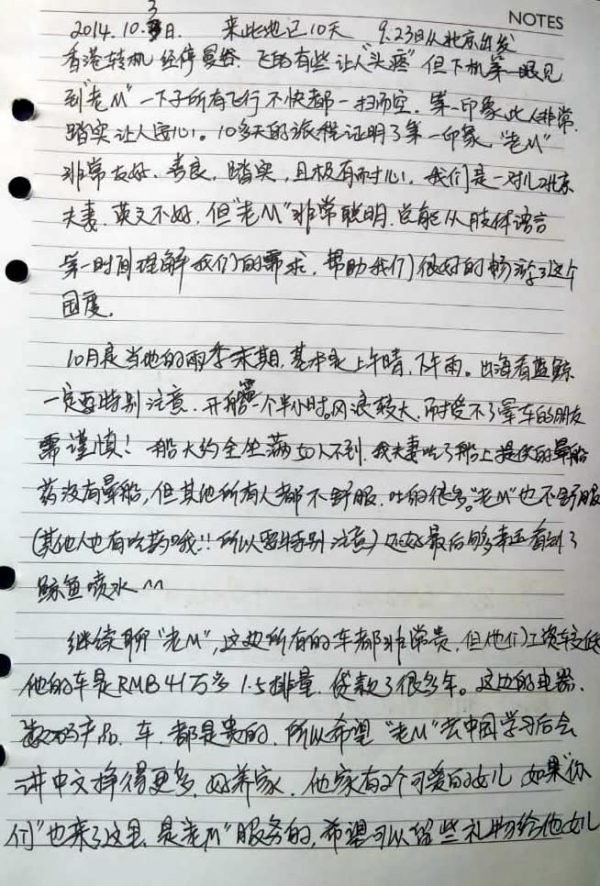 NOTES
2014.10.3日. 来此地已10天 9.23日从北京出发
香港转机 经停曼谷. 飞的有些让人"头疼" 但下机第一眼见
到"老M" 一下子所有飞行不快都一扫而空. 第一印象此人非常
踏实让人安心. 10多天的旅程证明了第一印象. "老M"
非常友好、善良、踏实, 且极有耐心. 我们是一对儿北京
夫妻. 英文不好. 但"老M"非常聪明. 总能从肢体语言
第一时间理解我们的需求, 帮助我们很好的畅游了这个
国度.
10月是当地的雨季末期, 基本是上午晴, 下午雨. 出海看蓝鲸
一定要特别注意. 开船一个半小时. 风浪较大, 承受不了晕车的朋友
需谨慎! 船大约全坐满 50人不到. 我夫妻吃了船上提供的晕船
药没有晕船, 但其他所有人都不舒服. 吐的很多. "老M"也不舒服
(其他人也有吃药哦!! 所以要特别注意) 还好最后够幸运看到了
鲸鱼喷水 ^^
继续聊"老M", 这边所有的车都非常贵. 但他们工资较低
他的车是RMB 41万多 1.5排量. 贷款了很多年. 这边的电器.
数码产品. 车. 都是贵的. 所以希望"老M"去中国学习后会
讲中文挣得更多. 好养家. 他家有2个可爱的女儿 如果"你
们"也来了这里. 是"老M"服务的, 希望可以留些礼物给他女儿